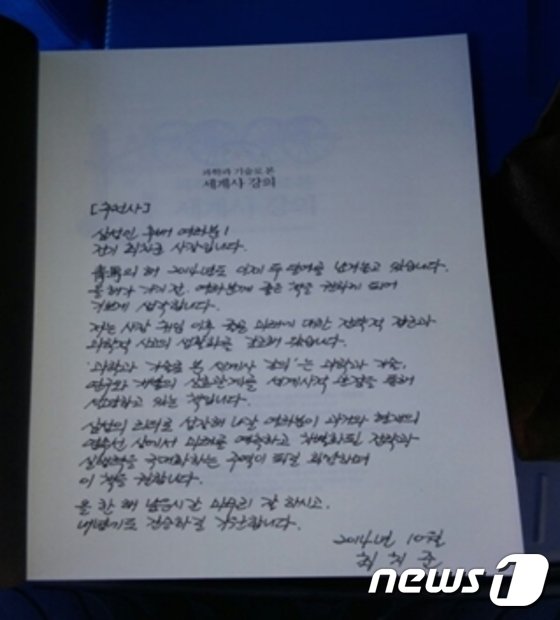 과학과 기술로 본
세계사 강의
[추천사]
삼성인 후배 여러분!
최치준 사장입니다.
靑馬의 해 2014년도 이제 두 달여를 남겨놓고 있습니다.
올 해가 가기 전, 여러분에게 좋은 책을 권하게 되어
기쁘게 생각합니다.
저는 사장 취임 이후 줄곧 미래에 대한 전략적 접근과
과학적 사고의 생활화를 강조해 왔습니다.
'과학과 기술로 본 세계사 강의'는 과학과 기술,
연구와 개발의 상호관계를 세계사적 관점을 통해
설명하고 있는 책입니다.
삼성의 리더로 성장해 나갈 여러분이 과거와 현재의
연속선 상에서 미래를 예측하고 차별화된 전략과
실행력을 극대화하는 주역이 되길 희망하며
이 책을 권합니다.
올 한 해 남은시간 마무리 잘 하시고,
내년기도 건승하길 기원합니다.
2014년 10월
최치준
news1